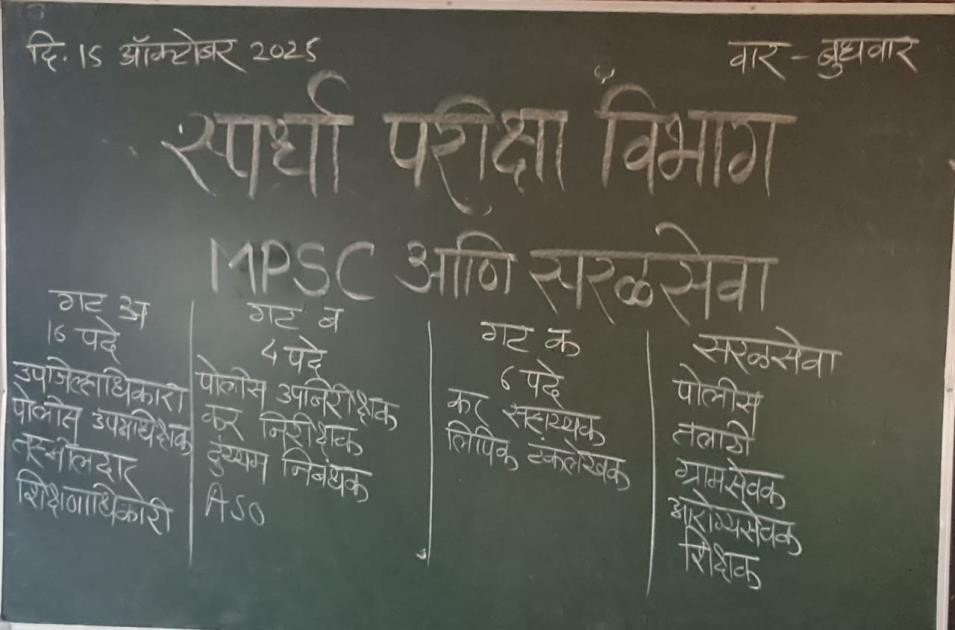 दि. 15 ऑक्टोबर 2025
वार - बुधवार
स्पर्धा परीक्षा विभाग
MPSC आणि सरळसेवा
गट अ
16 पदे
उपजिल्हाधिकारी
पोलीस उपअधिक्षक
तहसीलदार
शिक्षणाधिकारी
गट ब
4 पदे
पोलीस उपनिरीक्षक
कर निरीक्षक
दुय्यम निबंधक
ASO
गट क
6 पदे
कर सहाय्यक
लिपिक टंकलेखक
सरळसेवा
पोलीस
तलाठी
ग्रामसेवक
आरोग्यसेवक
शिक्षक